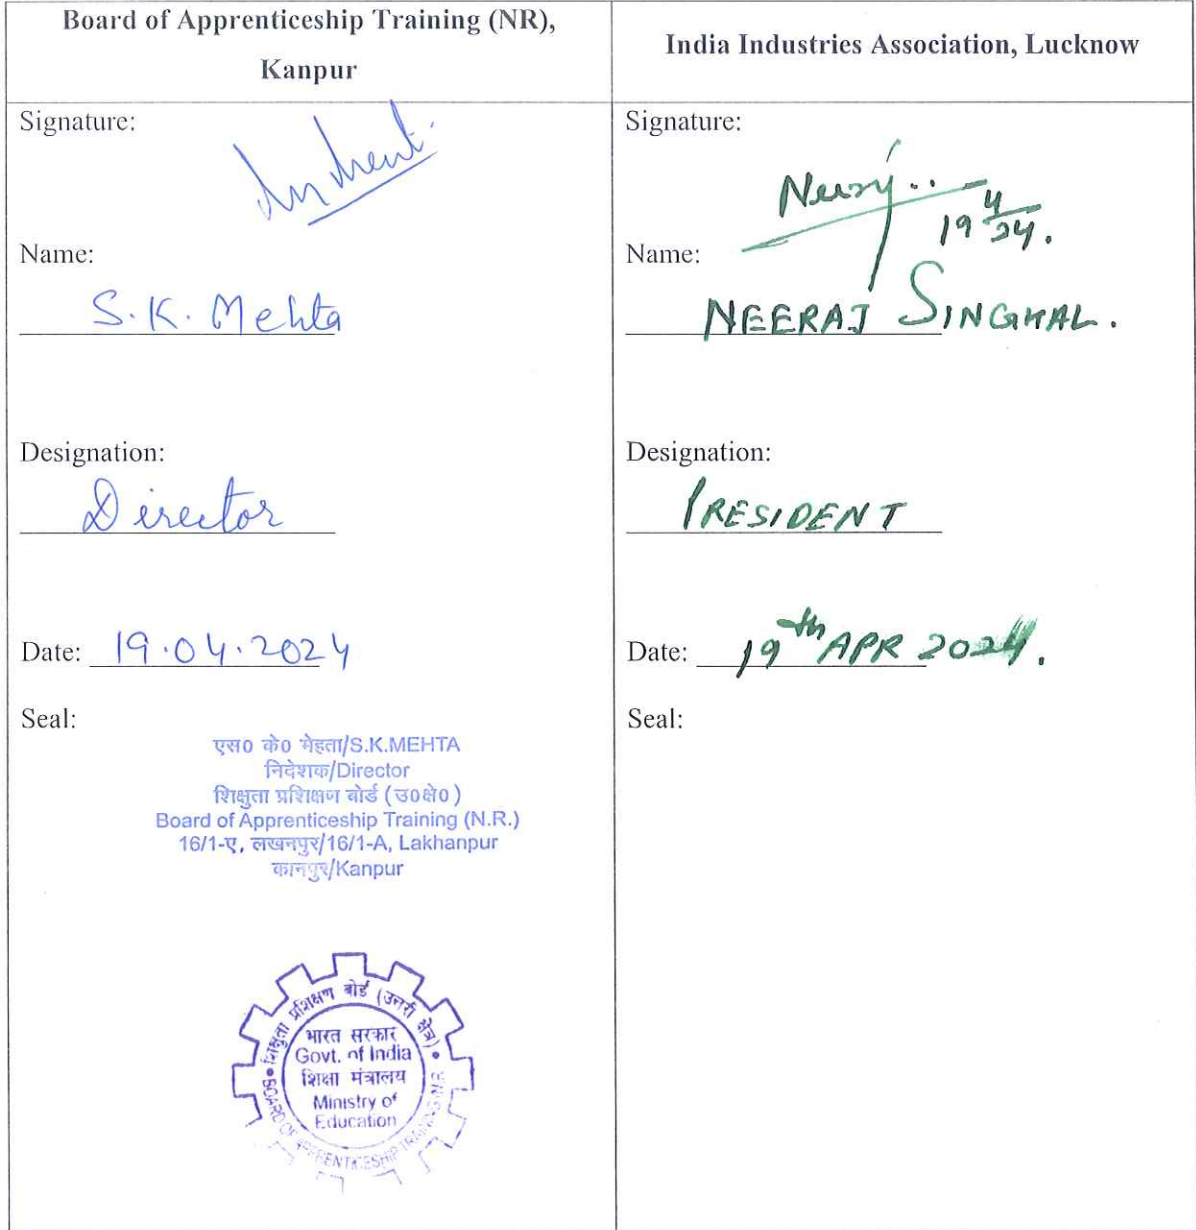 Board of Apprenticeship Training (NR),
Kanpur
Signature:
Name:
S.K. Mehta
Designation:
Director
Date: 19.04.2024
Seal:
एस0 के0 मेहता/S.K.MEHTA
निदेशक/Director
शिक्षुता प्रशिक्षण बोर्ड (उ0क्षे0)
Board of Apprenticeship Training (N.R.)
16/1-ए, लखनपुर/16/1-A, Lakhanpur
कानपुर/Kanpur
शिक्षुता प्रशिक्षण बोर्ड (उत्तरी क्षेत्र)
भारत सरकार
Govt. of India
शिक्षा मंत्रालय
Ministry of
Education
BOARD OF APPRENTICESHIP TRAINING (N.R.
India Industries Association, Lucknow
Signature:
19 4/24.
Name:
NEERAJ SINGHAL.
Designation:
PRESIDENT
Date: 19th APR 2024.
Seal: